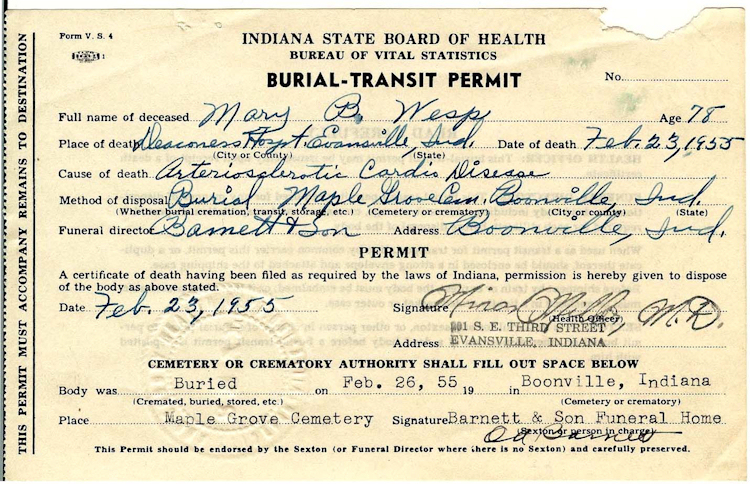 Form V. S. 4
INDIANA STATE BOARD OF HEALTH
BUREAU OF VITAL STATISTICS
BURIAL-TRANSIT PERMIT
No.
Full name of deceased Mary B. Wesp Age 78
Place of death Deaconess Hospt. Evansville, Ind. Date of death Feb. 23, 1955
(City or County) (State)
Cause of death Arteriosclerotic Cardio Disease
Method of disposal Burial Maple Grove Cem. Boonville, Ind.
(Whether burial cremation, transit, storage, etc.) (Cemetery or crematory) (City or county) (State)
Funeral director Barnett & Son Address Boonville, Ind.
PERMIT
A certificate of death having been filed as required by the laws of Indiana, permission is hereby given to dispose
of the body as above stated.
Date Feb. 23, 1955 Signature Minor Miller, M.D.
(Health Officer)
Address 201 S. E. THIRD STREET
EVANSVILLE, INDIANA
CEMETERY OR CREMATORY AUTHORITY SHALL FILL OUT SPACE BELOW
Body was Buried on Feb. 26, 55 19 in Boonville, Indiana
(Cremated, buried, stored, etc.) (Cemetery or crematory)
Place Maple Grove Cemetery Signature Barnett & Son Funeral Home
Barnett
(Sexton or person in charge)
This Permit should be endorsed by the Sexton (or Funeral Director where there is no Sexton) and carefully preserved.
THIS PERMIT MUST ACCOMPANY REMAINS TO DESTINATION